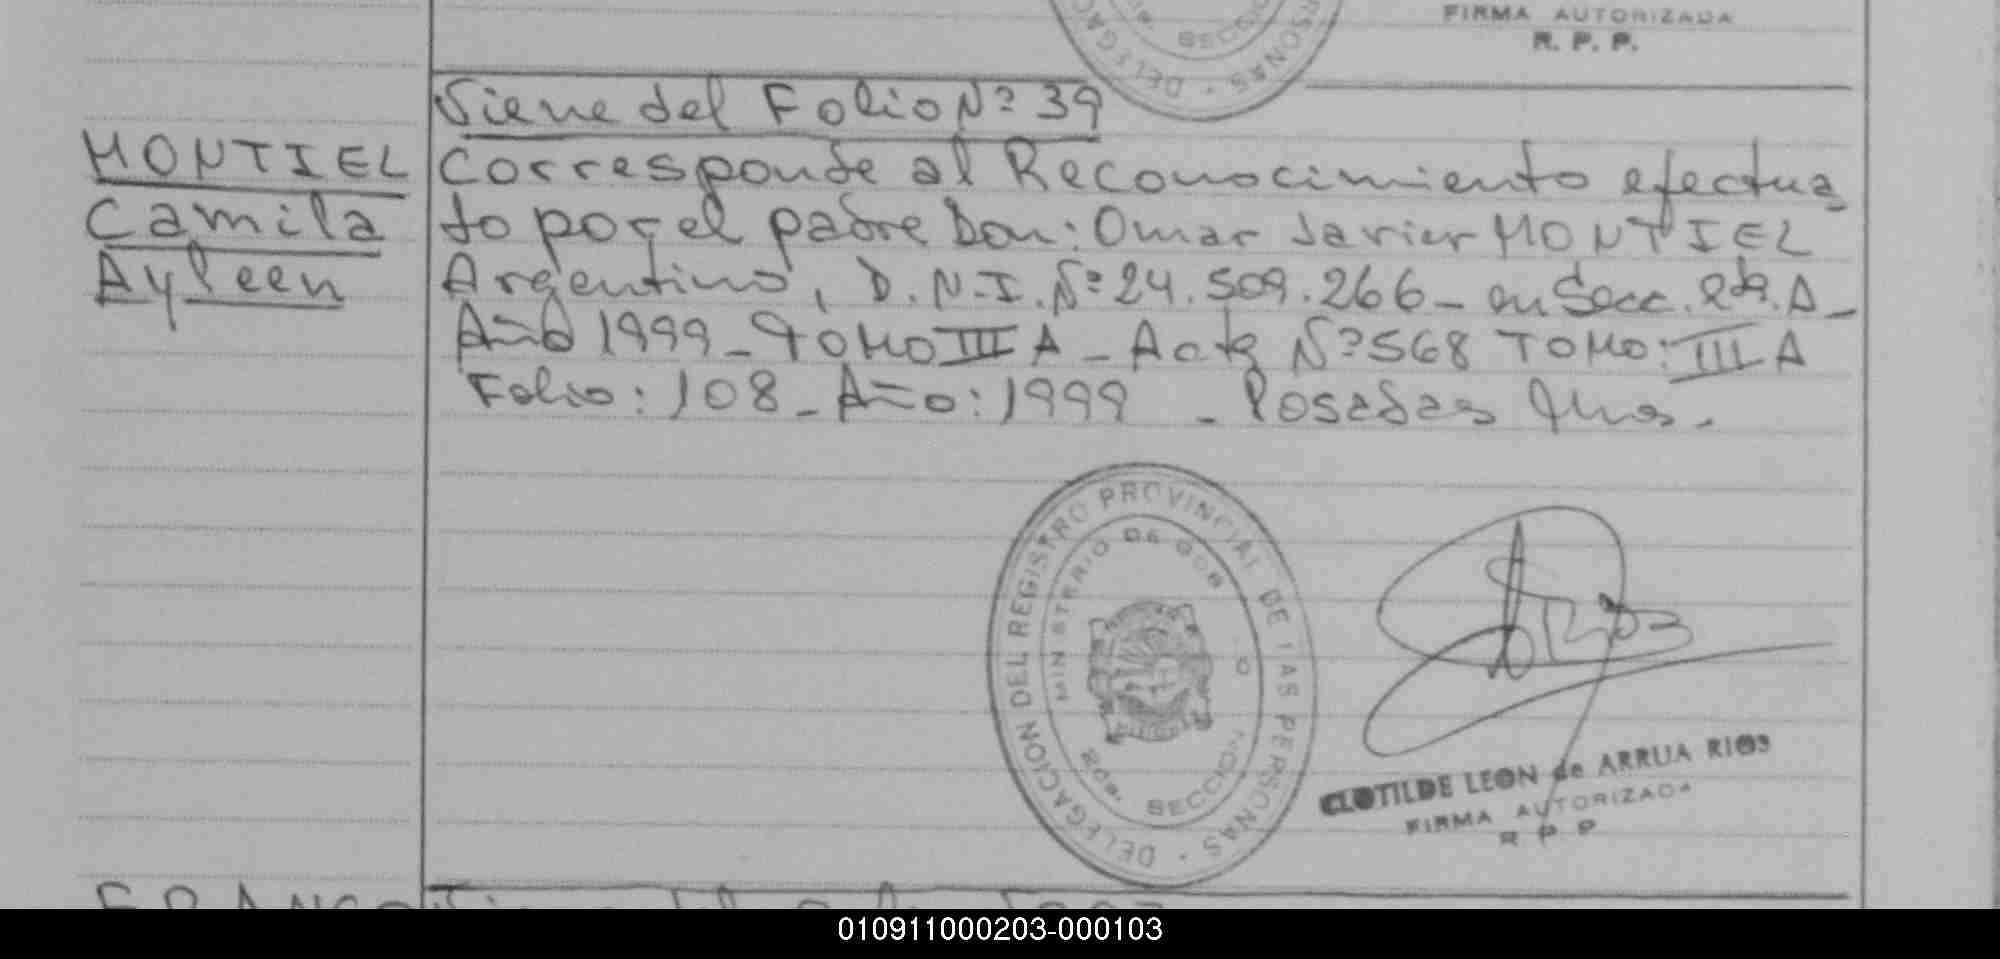 FIRMA AUTORIZADA
R. P. P.
PERSONAS · DELEGAC
SECCION
Viene del Folio Nº 39
MONTIEL
Camila
Ayleen
Corresponde al Reconocimiento efectua
do por el padre Don: Omar Javier MONTIEL
Argentino, D.N.I. Nº 24.509.266 - en Secc. 2da. A -
Año 1999 - TOMO III A - Acta Nº 568 TOMO: III A
Folio: 108 - Año: 1999 - Posadas Mnes.
DELEGACION DEL REGISTRO PROVINCIAL DE LAS PERSONAS ·
MINISTERIO DE GOB
2da. SECCION
CLOTILDE LEON de ARRUA RIOS
FIRMA AUTORIZADA
R P P
010911000203-000103